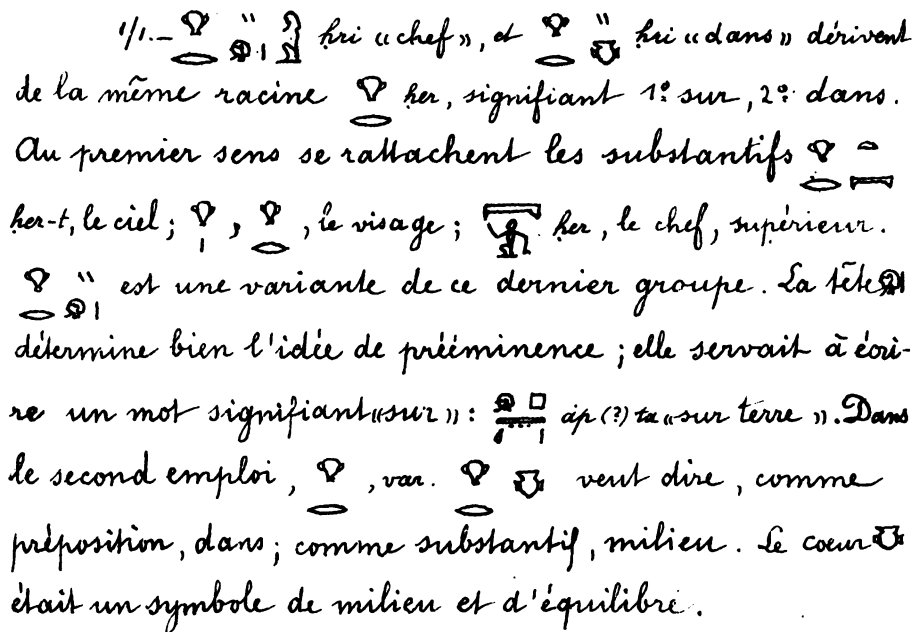 1/1.— 𓁷𓂋𓏭𓁶𓏤𓀀 ḥri «chef», et 𓁷𓂋𓏭𓄣 ḥri «dans» dérivent
de la même racine 𓁷𓂋 ḥer, signifiant 1º sur, 2º dans.
Au premier sens se rattachent les substantifs 𓁷𓂋𓏏𓇯
ḥer-t, le ciel; 𓁷𓏤, 𓁷𓂋, le visage; ḥer, le chef, supérieur.
𓁷𓂋𓏭𓁶𓏤 est une variante de ce dernier groupe. La tête 𓁶𓏤
détermine bien l'idée de prééminence; elle servait à écri-
re un mot signifiant «sur»: áp (?) ta «sur terre». Dans
le second emploi, 𓁷𓂋, var. 𓁷𓂋𓄣 veut dire, comme
préposition, dans; comme substantif, milieu. Le coeur 𓄣
était un symbole de milieu et d'équilibre.